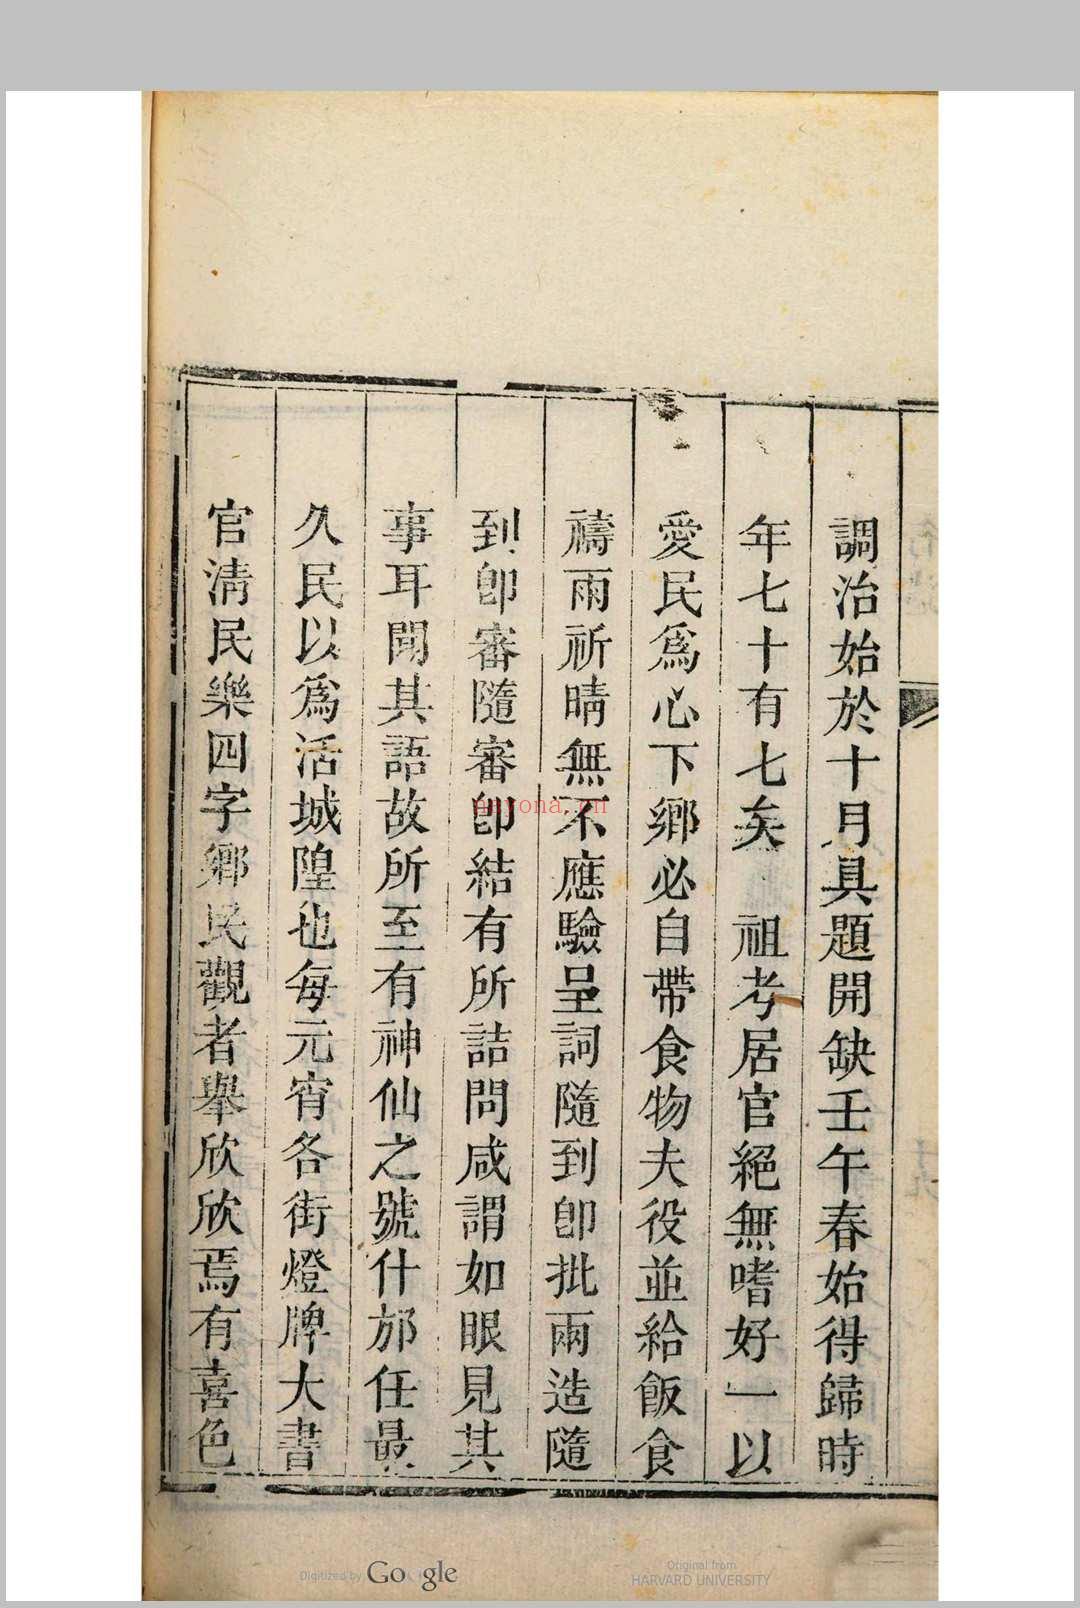 調治始於十月具題開缺壬午春始得歸時
年七十有七矣　祖考居官絕無嗜好一以
愛民爲心下鄉必自帶食物夫役並給飯食
禱雨祈晴無不應驗呈詞隨到卽批兩造隨
到卽審隨審卽結有所詰問咸謂如眼見其
事耳聞其語故所至有神仙之號什邡任最
久民以爲活城隍也每元宵各街燈牌大書
官淸民樂四字鄉民觀者舉欣欣焉有喜色
nayona.cn
Digitized by Google
Original from
HARVARD UNIVERSITY